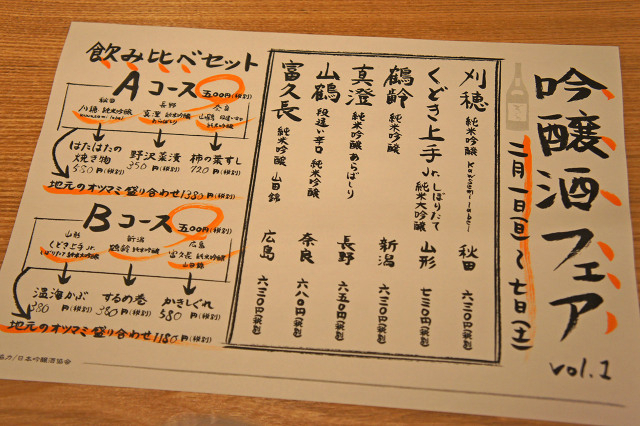 吟醸酒フェア
vol.1
二月一日(日)〜七日(土)
刈穂 純米吟醸 kawasemi label 秋田 六三〇円(税別)
くどき上手 Jr.しぼりたて 純米大吟醸 山形 七三〇円(税別)
鶴齢 純米吟醸 新潟 六三〇円(税別)
真澄 純米吟醸 あらばしり 長野 六五〇円(税別)
山鶴 段違い辛口 純米吟醸 奈良 六八〇円(税別)
富久長 純米吟醸 山田錦 広島 六三〇円(税別)
飲み比べセット
Aコース 五〇〇円(税別)
秋田
刈穂 純米吟醸
kawasemi label
長野
真澄 純米吟醸
あらばしり
奈良
山鶴 段違い辛口
純米吟醸
はたはたの
焼き物
550円(税別)
野沢菜漬
350円(税別)
柿の葉すし
720円(税別)
地元のオツマミ盛り合わせ1380円(税別)
Bコース 五〇〇円(税別)
山形
くどき上手Jr.
しぼりたて 純米大吟醸
新潟
鶴齢 純米吟醸
広島
富久長 純米吟醸
山田錦
温海かぶ
380円(税別)
するめの巻
380円(税別)
かきしぐれ
580円(税別)
地元のオツマミ盛り合わせ1180円(税別)
協力/日本吟醸酒協会